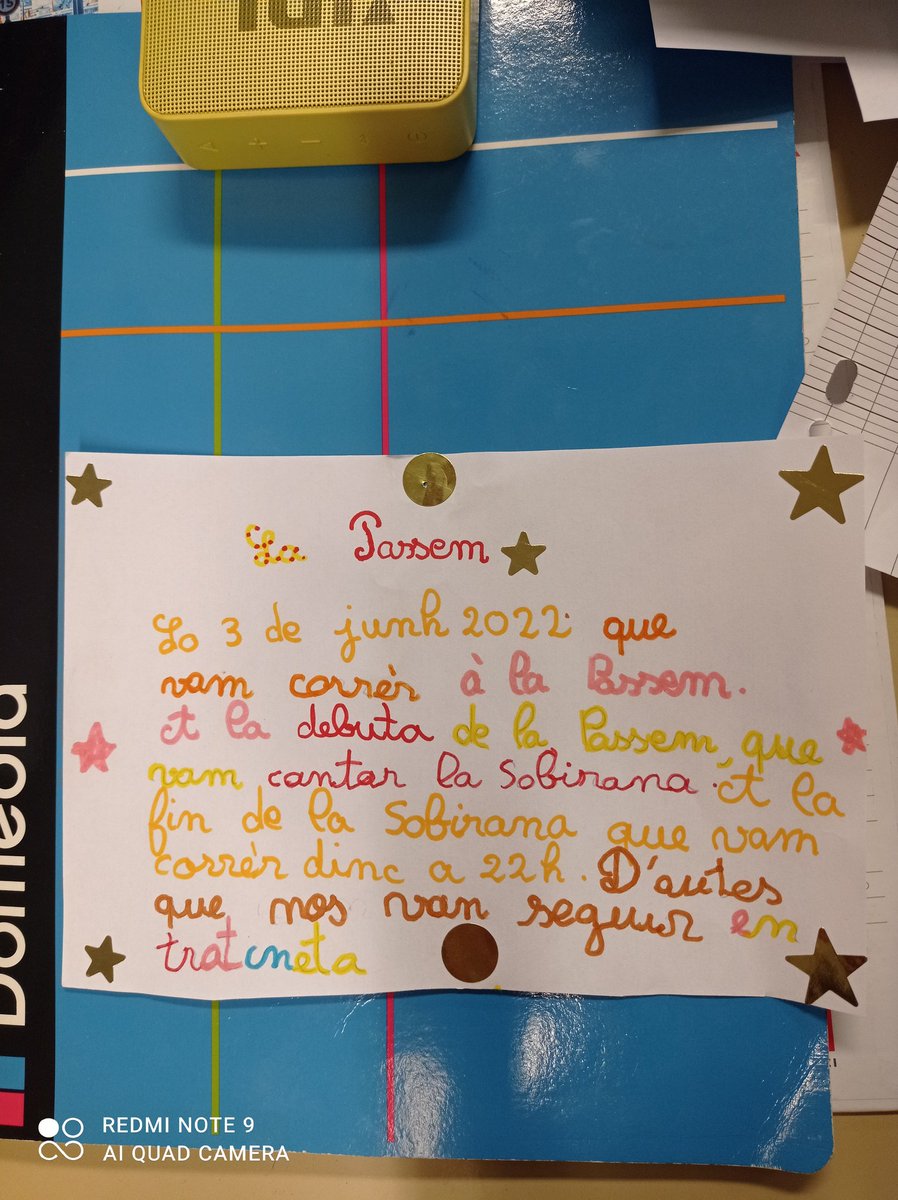 La Passem
Lo 3 de junh 2022 que
vam corrér à la Passem.
A la debuta de la Passem, que
vam cantar la Sobirana. A la
fin de la Sobirana que vam
corrér dinc a 22h. D'autes
que nos van seguir en
tratcneta
Domèola
REDMI NOTE 9
AI QUAD CAMERA